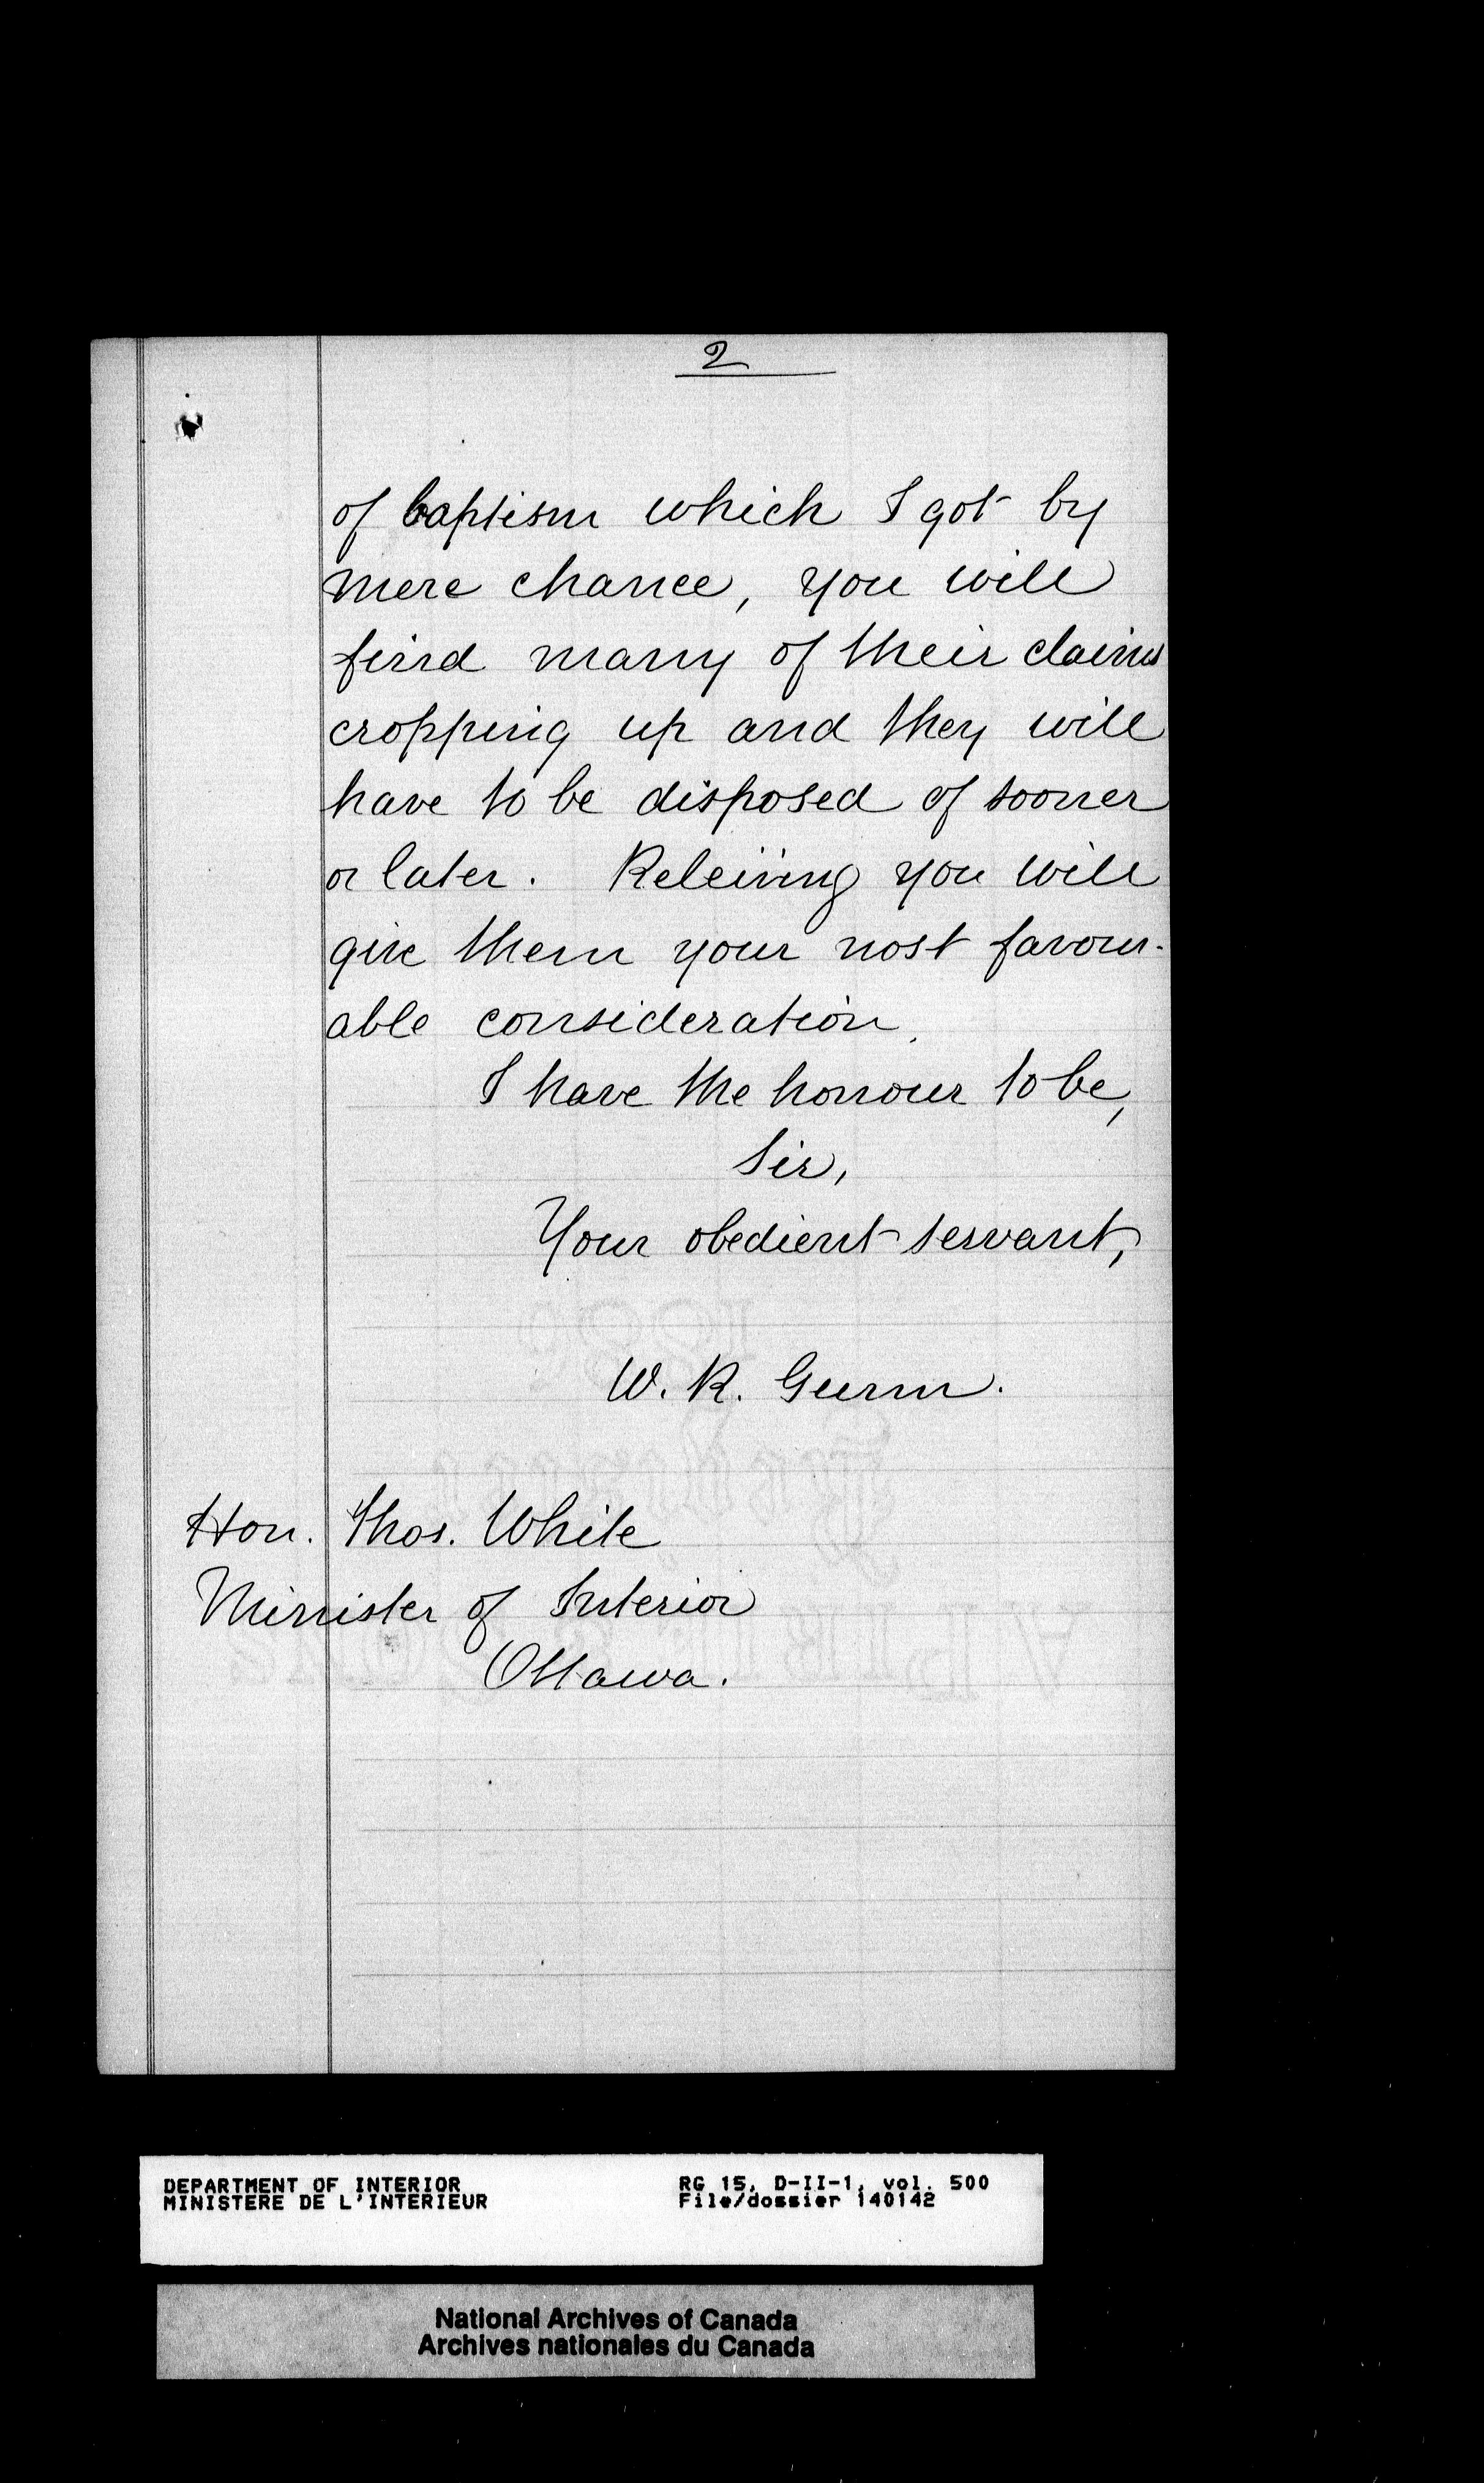 2
of baptism which I got by
mere chance, you will
find many of their claims
cropping up and they will
have to be disposed of sooner
or later. Releiving you will
give them your most favour-
able consideration.
I have the honour to be,
Sir,
Your obedient servant,
W. R. Gunn.
Hon. Thos. White
Minister of Interior
Ottawa.
DEPARTMENT OF INTERIOR
MINISTERE DE L'INTERIEUR
RG 15, D-II-1, vol. 500
File/dossier 140142
National Archives of Canada
Archives nationales du Canada